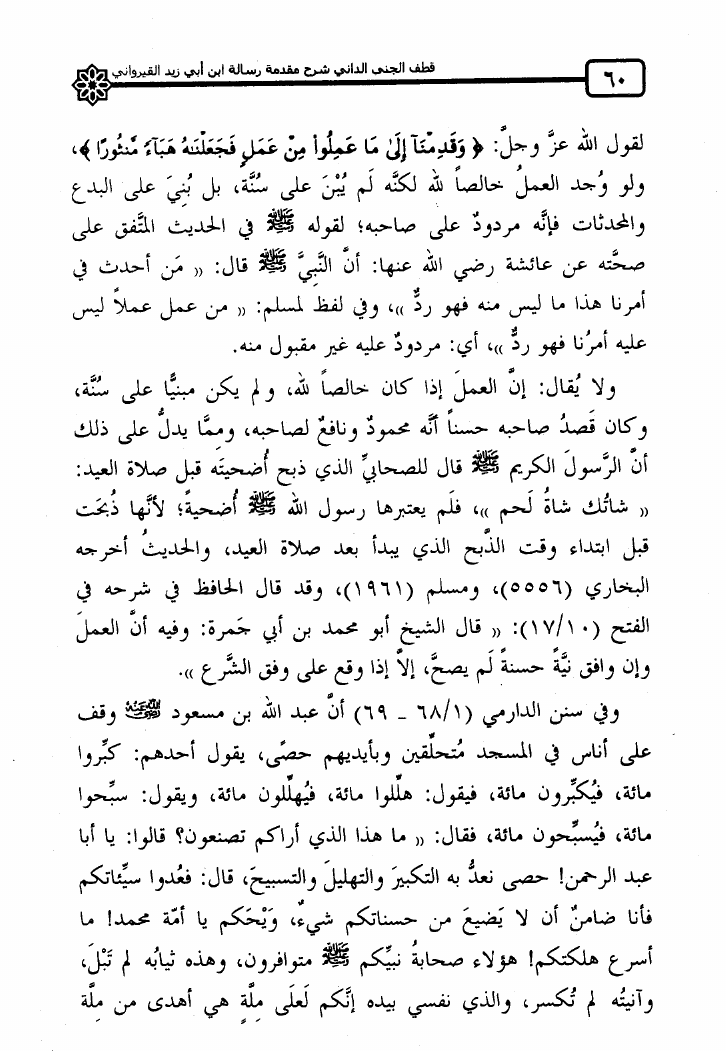 قطف الجنى الداني شرح مقدمة رسالة ابن أبي زيد القيرواني
٦٠
لقول الله عزَّ وجلَّ: ﴿ وَقَدِمْنَآ إِلَىٰ مَا عَمِلُوا۟ مِنْ عَمَلٍ فَجَعَلْنَـٰهُ هَبَآءً مَّنثُورًا ﴾،
ولو وُجد العملُ خالصاً لله لكنَّه لَم يُبْنَ على سُنَّة، بل بُنِيَ على البدع
والمحدثات فإنَّه مردودٌ على صاحبه؛ لقوله ﷺ في الحديث المتَّفق على
صحَّته عن عائشة رضي الله عنها: أنَّ النَّبِيَّ ﷺ قال: « مَن أحدث في
أمرنا هذا ما ليس منه فهو ردٌّ »، وفي لفظ لمسلم: « من عمل عملاً ليس
عليه أمرُنا فهو ردٌّ »، أي: مردودٌ عليه غير مقبول منه.
ولا يُقال: إنَّ العملَ إذا كان خالصاً لله، ولم يكن مبنيًّا على سُنَّة،
وكان قَصدُ صاحبه حسناً أنَّه محمودٌ ونافعٌ لصاحبه، وممَّا يدلُّ على ذلك
أنَّ الرَّسولَ الكريم ﷺ قال للصحابيِّ الذي ذبح أُضحيتَه قبل صلاة العيد:
« شاتُك شاةُ لَحم »، فلَم يعتبرها رسول الله ﷺ أُضحيةً؛ لأنَّها ذُبحَت
قبل ابتداء وقت الذَّبح الذي يبدأ بعد صلاة العيد، والحديثُ أخرجه
البخاري (٥٥٥٦)، ومسلم (١٩٦١)، وقد قال الحافظ في شرحه في
الفتح (١٧/١٠): « قال الشيخ أبو محمد بن أبي جَمرة: وفيه أنَّ العملَ
وإن وافق نيَّةً حسنةً لَم يصحَّ، إلاَّ إذا وقع على وفق الشَّرع ».
وفي سنن الدارمي (٦٨/١ ـ ٦٩) أنَّ عبد الله بن مسعود ﷺ وقف
على أناس في المسجد مُتحلِّقين وبأيديهم حصًى، يقول أحدهم: كبِّروا
مائة، فيُكبِّرون مائة، فيقول: هلِّلوا مائة، فيُهلِّلون مائة، ويقول: سبِّحوا
مائة، فيُسبِّحون مائة، فقال: « ما هذا الذي أراكم تصنعون؟ قالوا: يا أبا
عبد الرحمن! حصى نعدُّ به التكبيرَ والتهليلَ والتسبيحَ، قال: فعُدوا سيِّئاتكم
فأنا ضامنٌ أن لا يَضيعَ من حسناتكم شيءٌ، وَيْحَكم يا أمَّة محمد! ما
أسرع هلكتكم! هؤلاء صحابةُ نبيِّكم ﷺ متوافرون، وهذه ثيابُه لم تَبْلَ،
وآنيتُه لم تُكسر، والذي نفسي بيده إنَّكم لَعلَى ملَّةٍ هي أهدى من ملَّة